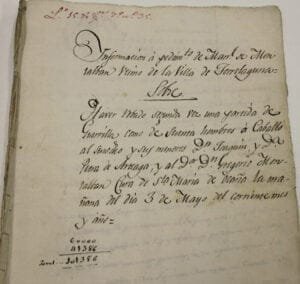 Informacion à pedimto de Manl de Mon
talban Vecino de la Villa de Torrelaguna
Sobre
Haver robado segunda vez una partida de
Guerrilla como de treinta hombres à Caballo
al Susodho y sus menores Dn Joaquin, y Da
de Arteaga, y al Dr Dn Gregorio Mon
talban Cura de Sta Maria de la ma
ñana del dia 3 de Mayo del corriente mes
y año=